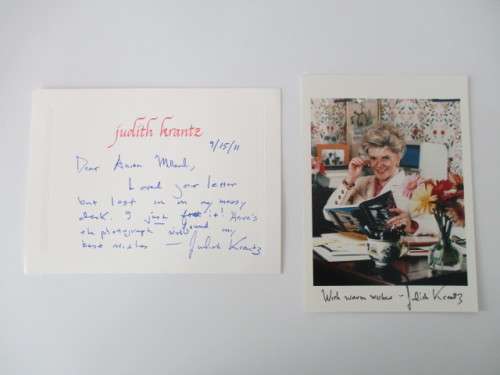 judith krantz
9/15/11
Dear
I loved your letter
but lost in on my messy
desk. I just it! Here's
found
the photograph my
best wishes — Judith Krantz
With warm wishes — Judith Krantz